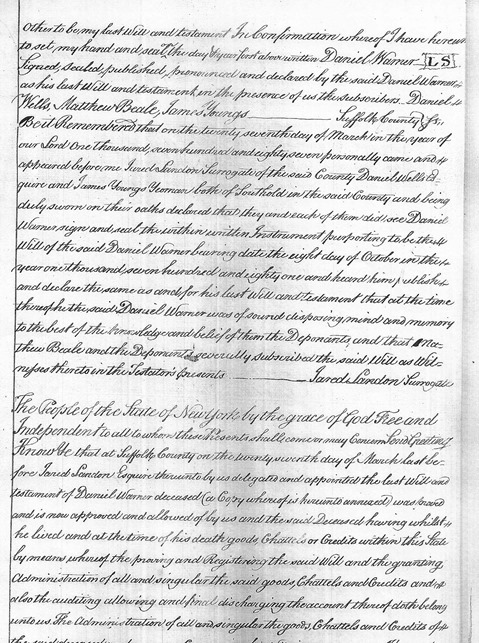 other to be, my last Will and testament In Confirmation whereof I have hereun
to set, my hand and seal the day & year first above written Daniel Warner LS
Signed, sealed, published, pronounced and declared by the said Daniel Warner
as his last Will and testament, in the presence of us the subscribers. Daniel
Wells, Matthew Beale, James Youngs Suffolk County Ss,
Be it Remembered that on the twenty seventh day of March in the year of
our Lord One thousand, seven hundred and eighty seven personally came and
appeared before, me Jared Landon Surrogate of the said County Daniel Wells Es-
quire and James Youngs Yeoman both of Southold in the said County and being
duly sworn on their oaths declared that, they and each of them did see Daniel
Warner sign and seal the within written Instrument purporting to be the
Will of the said Daniel Warner bearing date the eight day of October in the
year one thousand, seven hundred and eighty one and heard him publish
and declare the same as and for his last Will and testament that at the time
thereof he the said Daniel Warner was of sound disposing mind and memory
to the best of the knowledge and belief of them the Deponants, and that Mat-
thew Beale and the Deponants, severally subscribed the said Will as Wit-
nesses thereto in the Testators presents Jared Landon Surrogate
The People of the State of New York by the grace of God Free and
Independent to all to whom these Presents shall come or may Concern Send Greeting
Know Ye that at Suffolk County on the twenty seventh day of March last be-
fore Jared Landon Esquire thereunto by us delegated and appointed the last Will and
testament of Daniel Warner deceased (a Copy whereof is hereunto annexed) was proved
and is now approved and allowed of by us and the said Deceased having whilst
he lived and at the time of his death goods, Chattels or Credits within this State
by means, whereof the proving and Registering the said Will and the granting,
Administration of all and singular the said goods, Chattels and Credits and
also the auditing allowing and final discharging the account thereof doth belong
unto us. The Administration of all and singular the goods, Chattels and Credits of